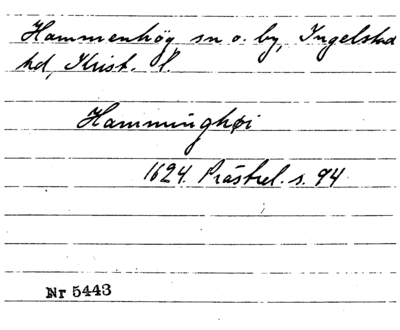 Hammenhög sn o. by, Ingelstad
hd, Krist. l.
Hamminghøi
1624. Prästrel. s. 94.
Nr 5443